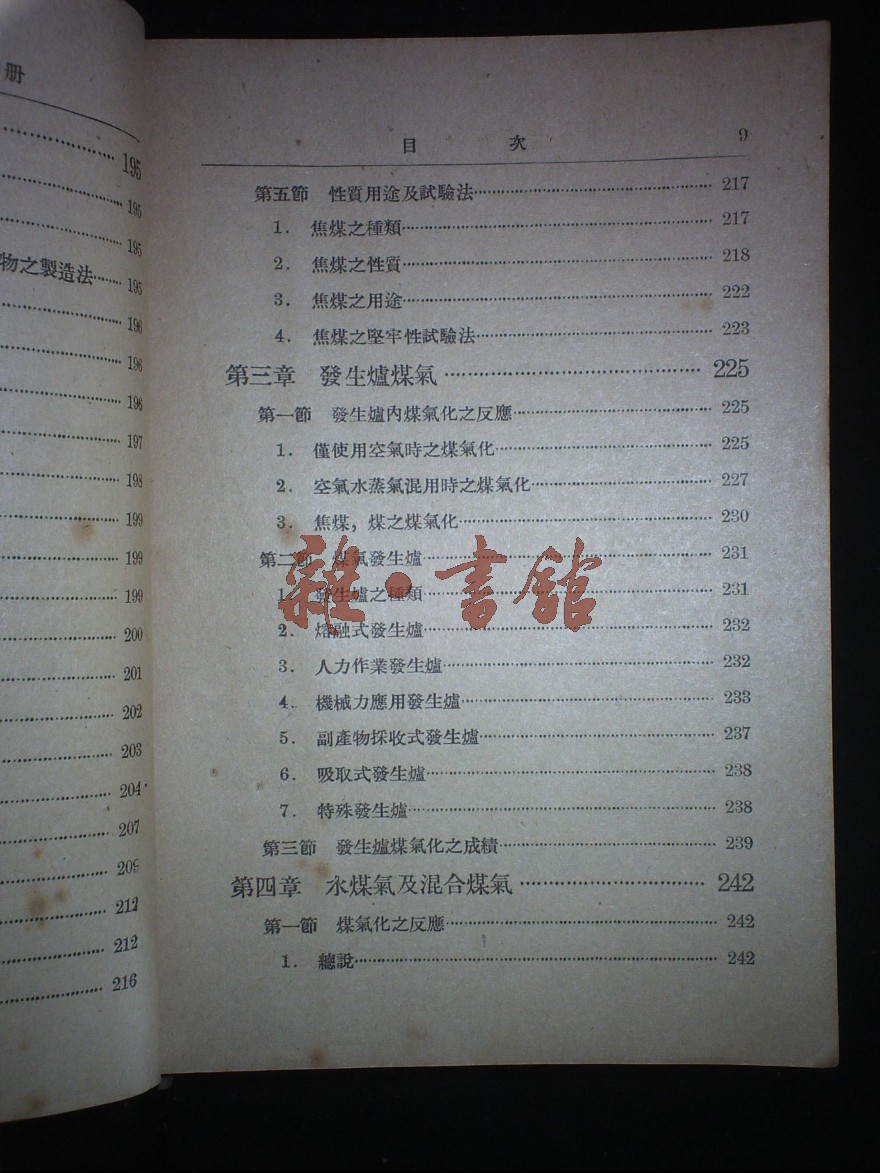 册
195
195
195
物之製造法 195
196
196
196
197
198
199
199
199
200
201
202
203
204
207
209
212
212
216
目 次 9
第五節 性質用途及試驗法 217
1. 焦煤之種類 217
2. 焦煤之性質 218
3. 焦煤之用途 222
4. 焦煤之堅牢性試驗法 223
第三章 發生爐煤氣 225
第一節 發生爐內煤氣化之反應 225
1. 僅使用空氣時之煤氣化 225
2. 空氣水蒸氣混用時之煤氣化 227
3. 焦煤，煤之煤氣化 230
第二節 煤氣發生爐 231
1. 發生爐之種類 231
2. 熔融式發生爐 232
3. 人力作業發生爐 232
4. 機械力應用發生爐 233
5. 副產物採收式發生爐 237
6. 吸取式發生爐 238
7. 特殊發生爐 238
第三節 發生爐煤氣化之成績 239
第四章 水煤氣及混合煤氣 242
第一節 煤氣化之反應 242
1. 總說 242
雜·書館